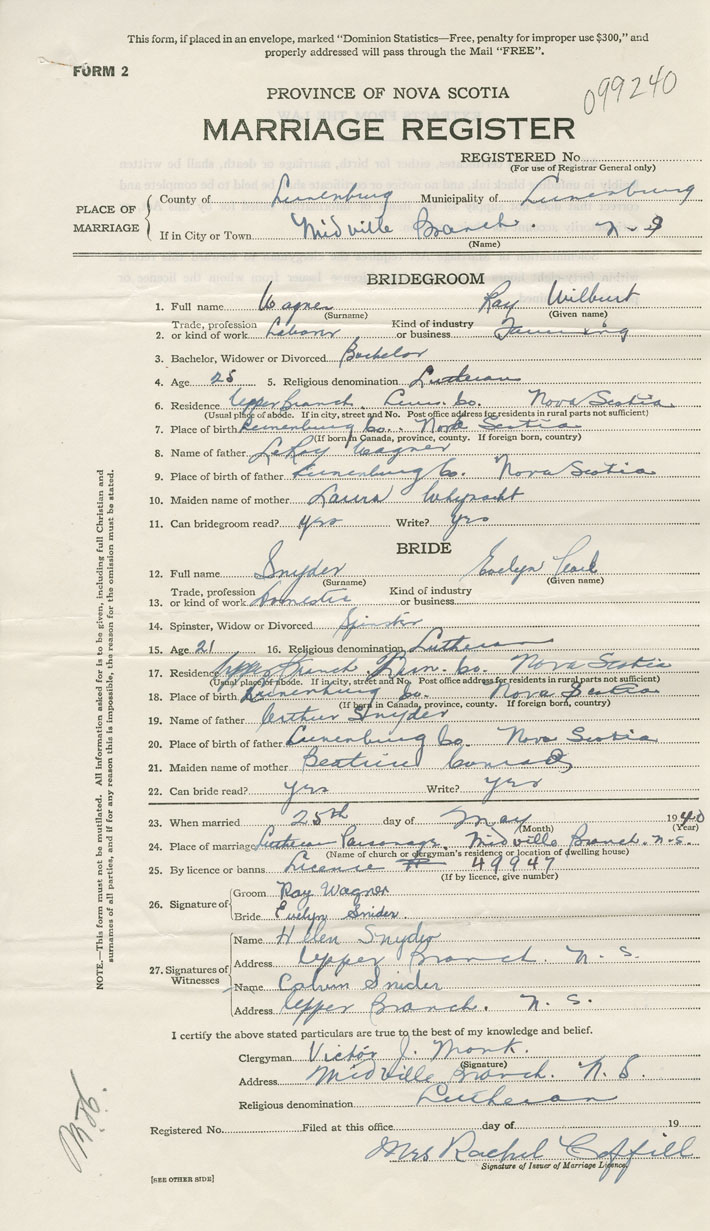 This form, if placed in an envelope, marked "Dominion Statistics—Free, penalty for improper use $300," and
properly addressed will pass through the Mail "FREE".
FORM 2
099240
PROVINCE OF NOVA SCOTIA
MARRIAGE REGISTER
REGISTERED No.
(For use of Registrar General only)
PLACE OF MARRIAGE
County of Lunenburg Municipality of Lunenburg
If in City or Town Midville Branch. N-S
(Name)
BRIDEGROOM
1. Full name Wagner Ray Wilburt
(Surname) (Given name)
2. Trade, profession or kind of work Laborer Kind of industry or business Farming
3. Bachelor, Widower or Divorced Bachelor
4. Age 25 5. Religious denomination Lutheran
6. Residence Upper Branch. Lun. Co. Nova Scotia
(Usual place of abode. If in city, street and No. Post office address for residents in rural parts not sufficient)
7. Place of birth Lunenburg Co. Nova Scotia
(If born in Canada, province, county. If foreign born, country)
8. Name of father LeRoy Wagner
9. Place of birth of father Lunenburg Co. Nova Scotia
10. Maiden name of mother Laura Whynacht
11. Can bridegroom read? yes Write? yes
BRIDE
12. Full name Snyder Evelyn Pearl
(Surname) (Given name)
13. Trade, profession or kind of work Domestic Kind of industry or business
14. Spinster, Widow or Divorced Spinster
15. Age 21 16. Religious denomination Lutheran
17. Residence Upper Branch. Lun. Co. Nova Scotia
(Usual place of abode. If in city, street and No. Post office address for residents in rural parts not sufficient)
18. Place of birth Lunenburg Co. Nova Scotia
(If born in Canada, province, county. If foreign born, country)
19. Name of father Arthur Snyder
20. Place of birth of father Lunenburg Co. Nova Scotia
21. Maiden name of mother Beatrice Conrad
22. Can bride read? yes Write? yes
23. When married 25th day of May 1940
(Month) (Year)
24. Place of marriage Lutheran Parsonage. Midville Branch. N.S.
(Name of church or clergyman's residence or location of dwelling house)
25. By licence or banns Licence 49947
(If by licence, give number)
26. Signature of
Groom Ray Wagner
Bride Evelyn Snider
27. Signatures of Witnesses
Name Helen Snyder
Address Upper Branch N. S.
Name Calvin Snider
Address Upper Branch. N. S.
I certify the above stated particulars are true to the best of my knowledge and belief.
Clergyman Victor J. Monk.
(Signature)
Address Midville Branch. N. S.
Religious denomination Lutheran
Registered No. Filed at this office day of 19
Mrs Rachel Coffill
Signature of Issuer of Marriage Licence.
[SEE OTHER SIDE]
NOTE.—This form must not be mutilated. All information asked for is to be given, including full Christian and
surnames of all parties, and if for any reason this is impossible, the reason for the omission must be stated.